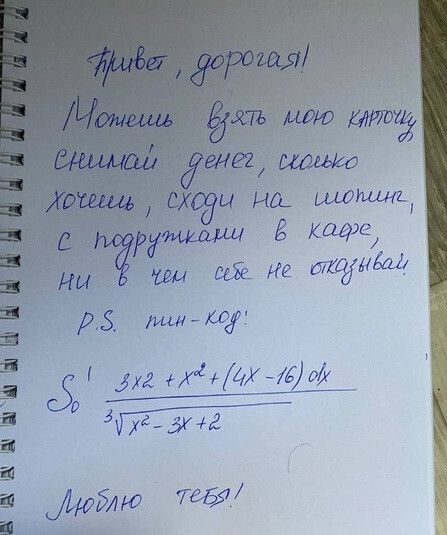 Привет, дорогая!
Можешь взять мою карточку,
снимай денег, сколько
хочешь, сходи на шопинг,
с подружками в кафе,
ни в чем себе не отказывай
P.S. пин-код:
∫₀¹ 3x2 + x² + (4x - 16) dx
∛x² - 3x + 2
Люблю тебя!